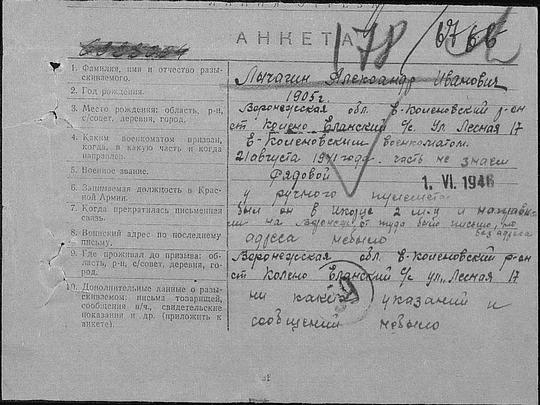 АНКЕТА
178
1. Фамилия, имя и отчество разы-
скиваемого.
Лычагин Александр Иванович
2. Год рождения.
1905г.
3. Место рождения: область, р-н,
с/совет, деревня, город.
Воронежская обл. в-Коленовский р-он
ст Колено Еланский с/с ул Лесная 17
4. Каким военкоматом призван,
когда, в какую часть и когда
направлен.
в-Коленовским военкоматом.
21 августа 1941 года. часть не знаем
5. Военное звание.
Рядовой
1. VI. 1946
6. Занимаемая должность в Крас-
ной Армии.
у ручного пулемета
7. Когда прекратилась письменная
связь.
был он в 2 и направи-
ли на Воронеж от туда было письмо, но
без адреса
8. Воинский адрес по последнему
письму.
адреса небыло
9. Где проживал до призыва: об-
ласть, р-н, с/совет, деревня, го-
род.
Воронежская обл в-Коленовский р-он
ст Колено Еланский с/с ул. Лесная 17
10. Дополнительные данные о разы-
скиваемом: письма товарищей,
сообщения в/ч., свидетельские
показания и др. (приложить к
анкете).
ни каких указаний и
сообщений небыло